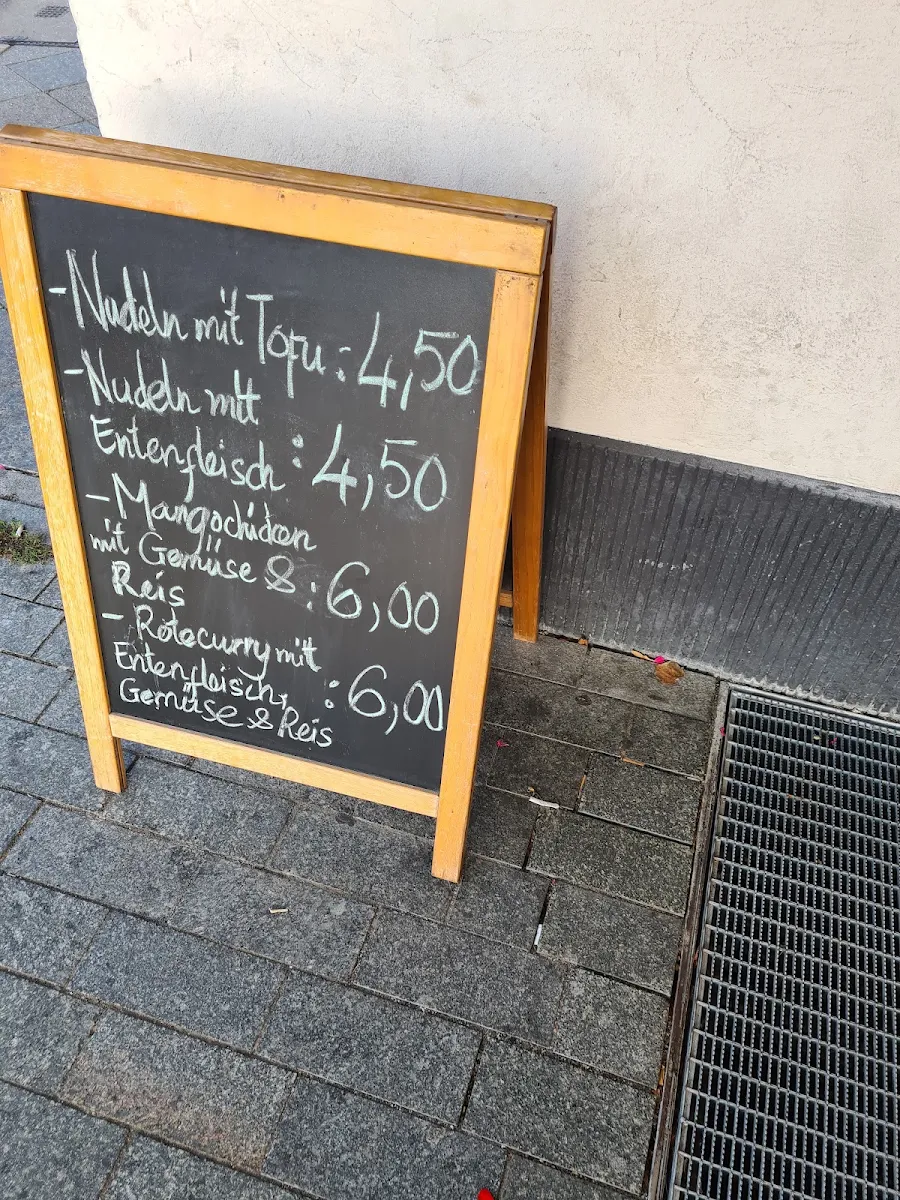 - Nudeln mit Tofu : 4,50
- Nudeln mit
Entenfleisch : 4,50
- Mangochicken
mit Gemüse & : 6,00
Reis
- Rotecurry mit
Entenfleisch, : 6,00
Gemüse & Reis